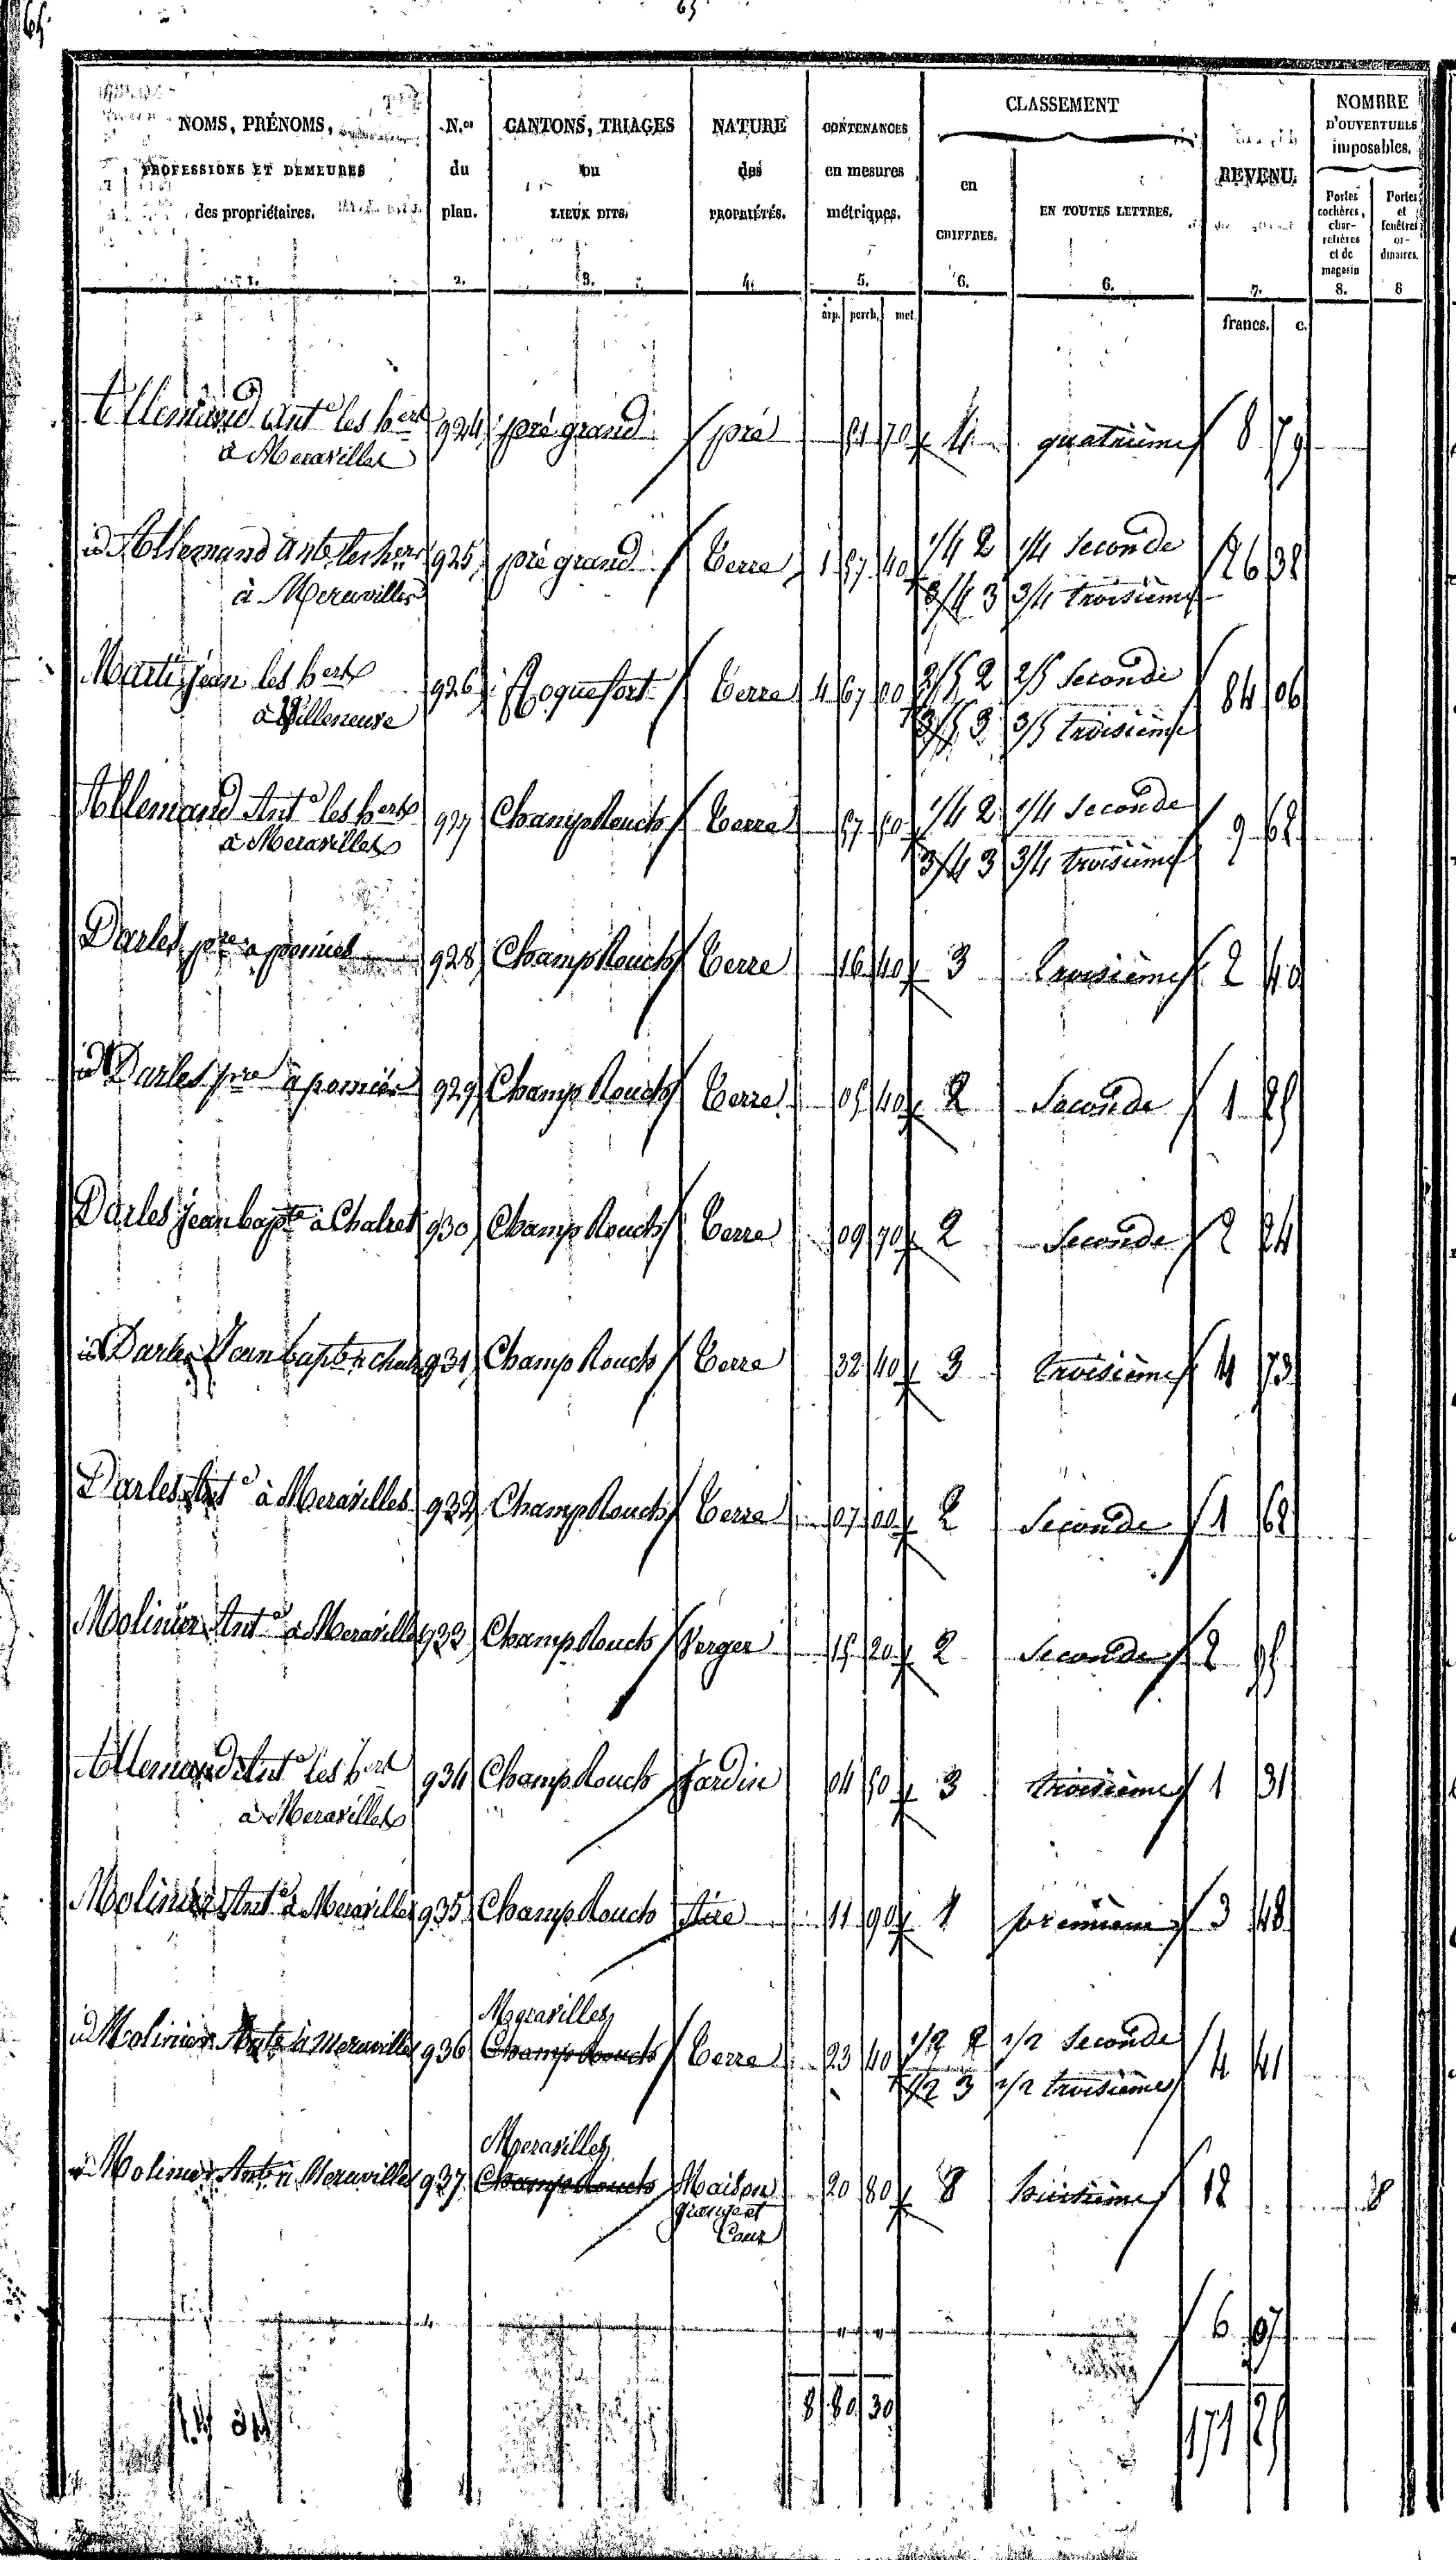 65
65
NOMS, PRÉNOMS,
PROFESSIONS ET DEMEURES
des propriétaires.
1.
N.os
du
plan.
2.
CANTONS, TRIAGES
ou
LIEUX DITS.
3.
NATURE
des
PROPRIÉTÉS.
4.
CONTENANCES
en mesures
métriques.
5.
CLASSEMENT
en
CHIFFRES.
6.
EN TOUTES LETTRES.
6.
REVENU.
7.
NOMBRE
D'OUVERTURES
imposables.
Portes
cochères,
char-
retières
et de
magasin
8.
Portes
et
fenêtres
or-
dinaires.
8
arp. perch. met. francs. c.
Allemand Ant.e les hers 924 pré grand pré 51 70 4 quatrième 8 79
à Meravilles
id Allemand Ante les hers 925 pré grand Terre 1 57 40 1/4 2 1/4 Seconde 26 38
à Meravilles 3/4 3 3/4 troisième
Marti jean les hers 926 Roquefort Terre 4 67 00 2/5 2 2/5 Seconde 84 06
à Villeneuve 3/5 3 3/5 troisième
Allemand Ant.e les hers 927 Champ Rouch Terre 57 50 1/4 2 1/4 Seconde 9 62
à Meravilles 3/4 3 3/4 troisième
Darles pre a pomiés 928 Champ Rouch Terre 16 40 3 troisième 2 40
id Darles pre à pomiés 929 Champ Rouch Terre 05 40 2 Seconde 1 25
Darles jean bapte à Chalret 930 Champ Rouch Terre 09 70 2 Seconde 2 24
id Darles Jean bapte à 931 Champ Rouch Terre 32 40 3 troisième 4 73
Darles Ant.e à Meravilles 932 Champ Rouch Terre 07 00 2 Seconde 1 62
Molinier Ant.e à Meravilles 933 Champ Rouch Verger 15 20 2 Seconde 2
Allemand Ant.e les hers 934 Champ Rouch Jardin 04 50 3 troisième 1 31
à Meravilles
Molinier Ant.e à Meravilles 935 Champ Rouch Aire 11 90 1 première 3 48
Meravilles
id Molinier Ante à Meravilles 936 Champ Rouch Terre 23 40 1/2 2 1/2 Seconde 4 41
1/2 3 1/2 troisième
Meravilles
id Molinier Ante à Meravilles 937 Champ Rouch Maison 20 80 8 huitième 12 8
grange et
Cour
6 97
8 80 30 171 25